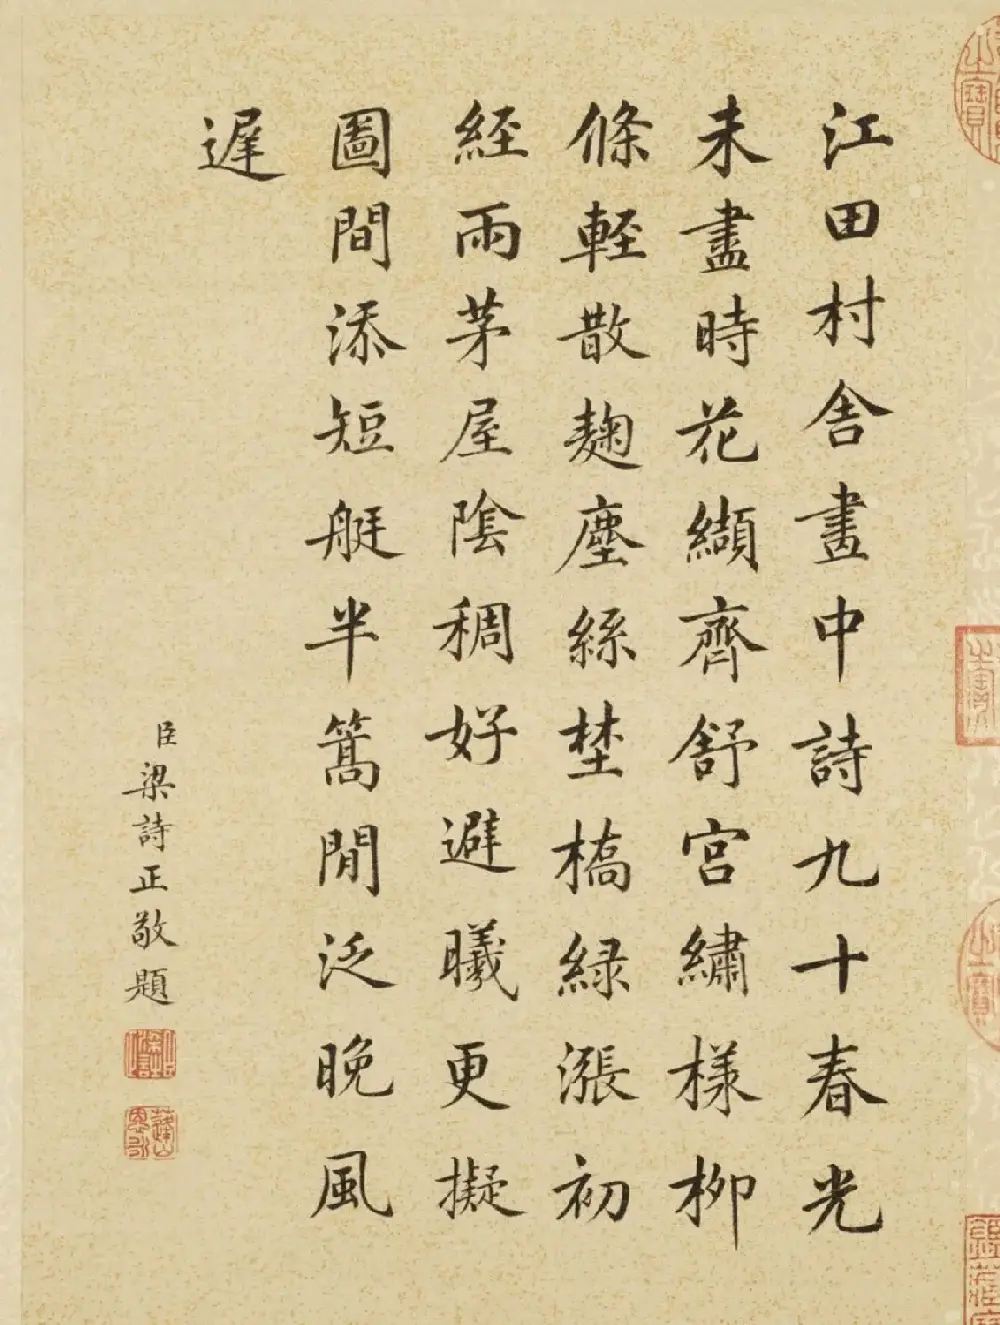 江田村舍畫中詩九十春光
未盡時花纈齊舒宮繡樣柳
條輕散麴塵絲埜橋緑漲初
經雨茅屋陰稠好避曦更擬
圖間添短艇半篙閒泛晚風
遲
臣梁詩正敬題